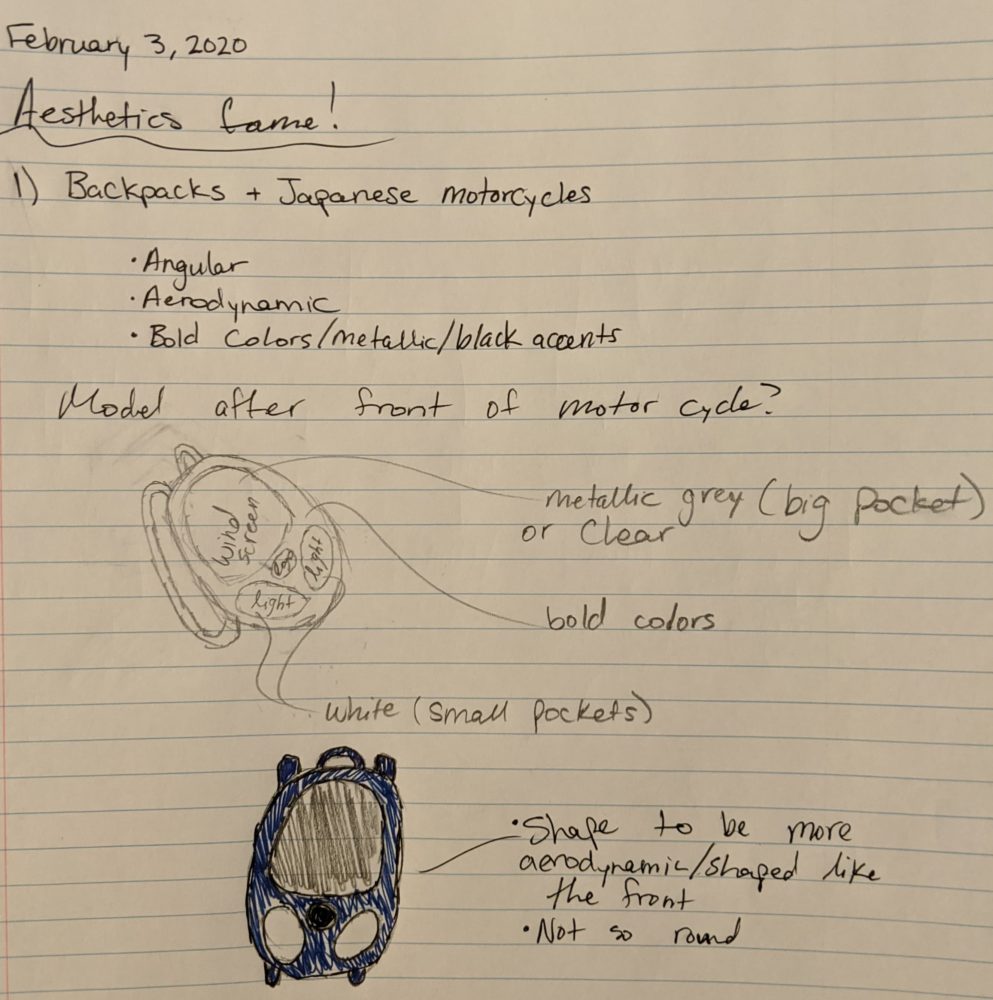 February 3, 2020
Aesthetics Game!
1) Backpacks + Japanese motorcycles
• Angular
• Aerodynamic
• Bold Colors/metallic/black accents
Model after front of motor cycle?
metallic grey (big pocket)
or Clear
wind
screen
logo
light
light
bold colors
white (small pockets)
• Shape to be more
aerodynamic/shaped like
the front
• Not so round